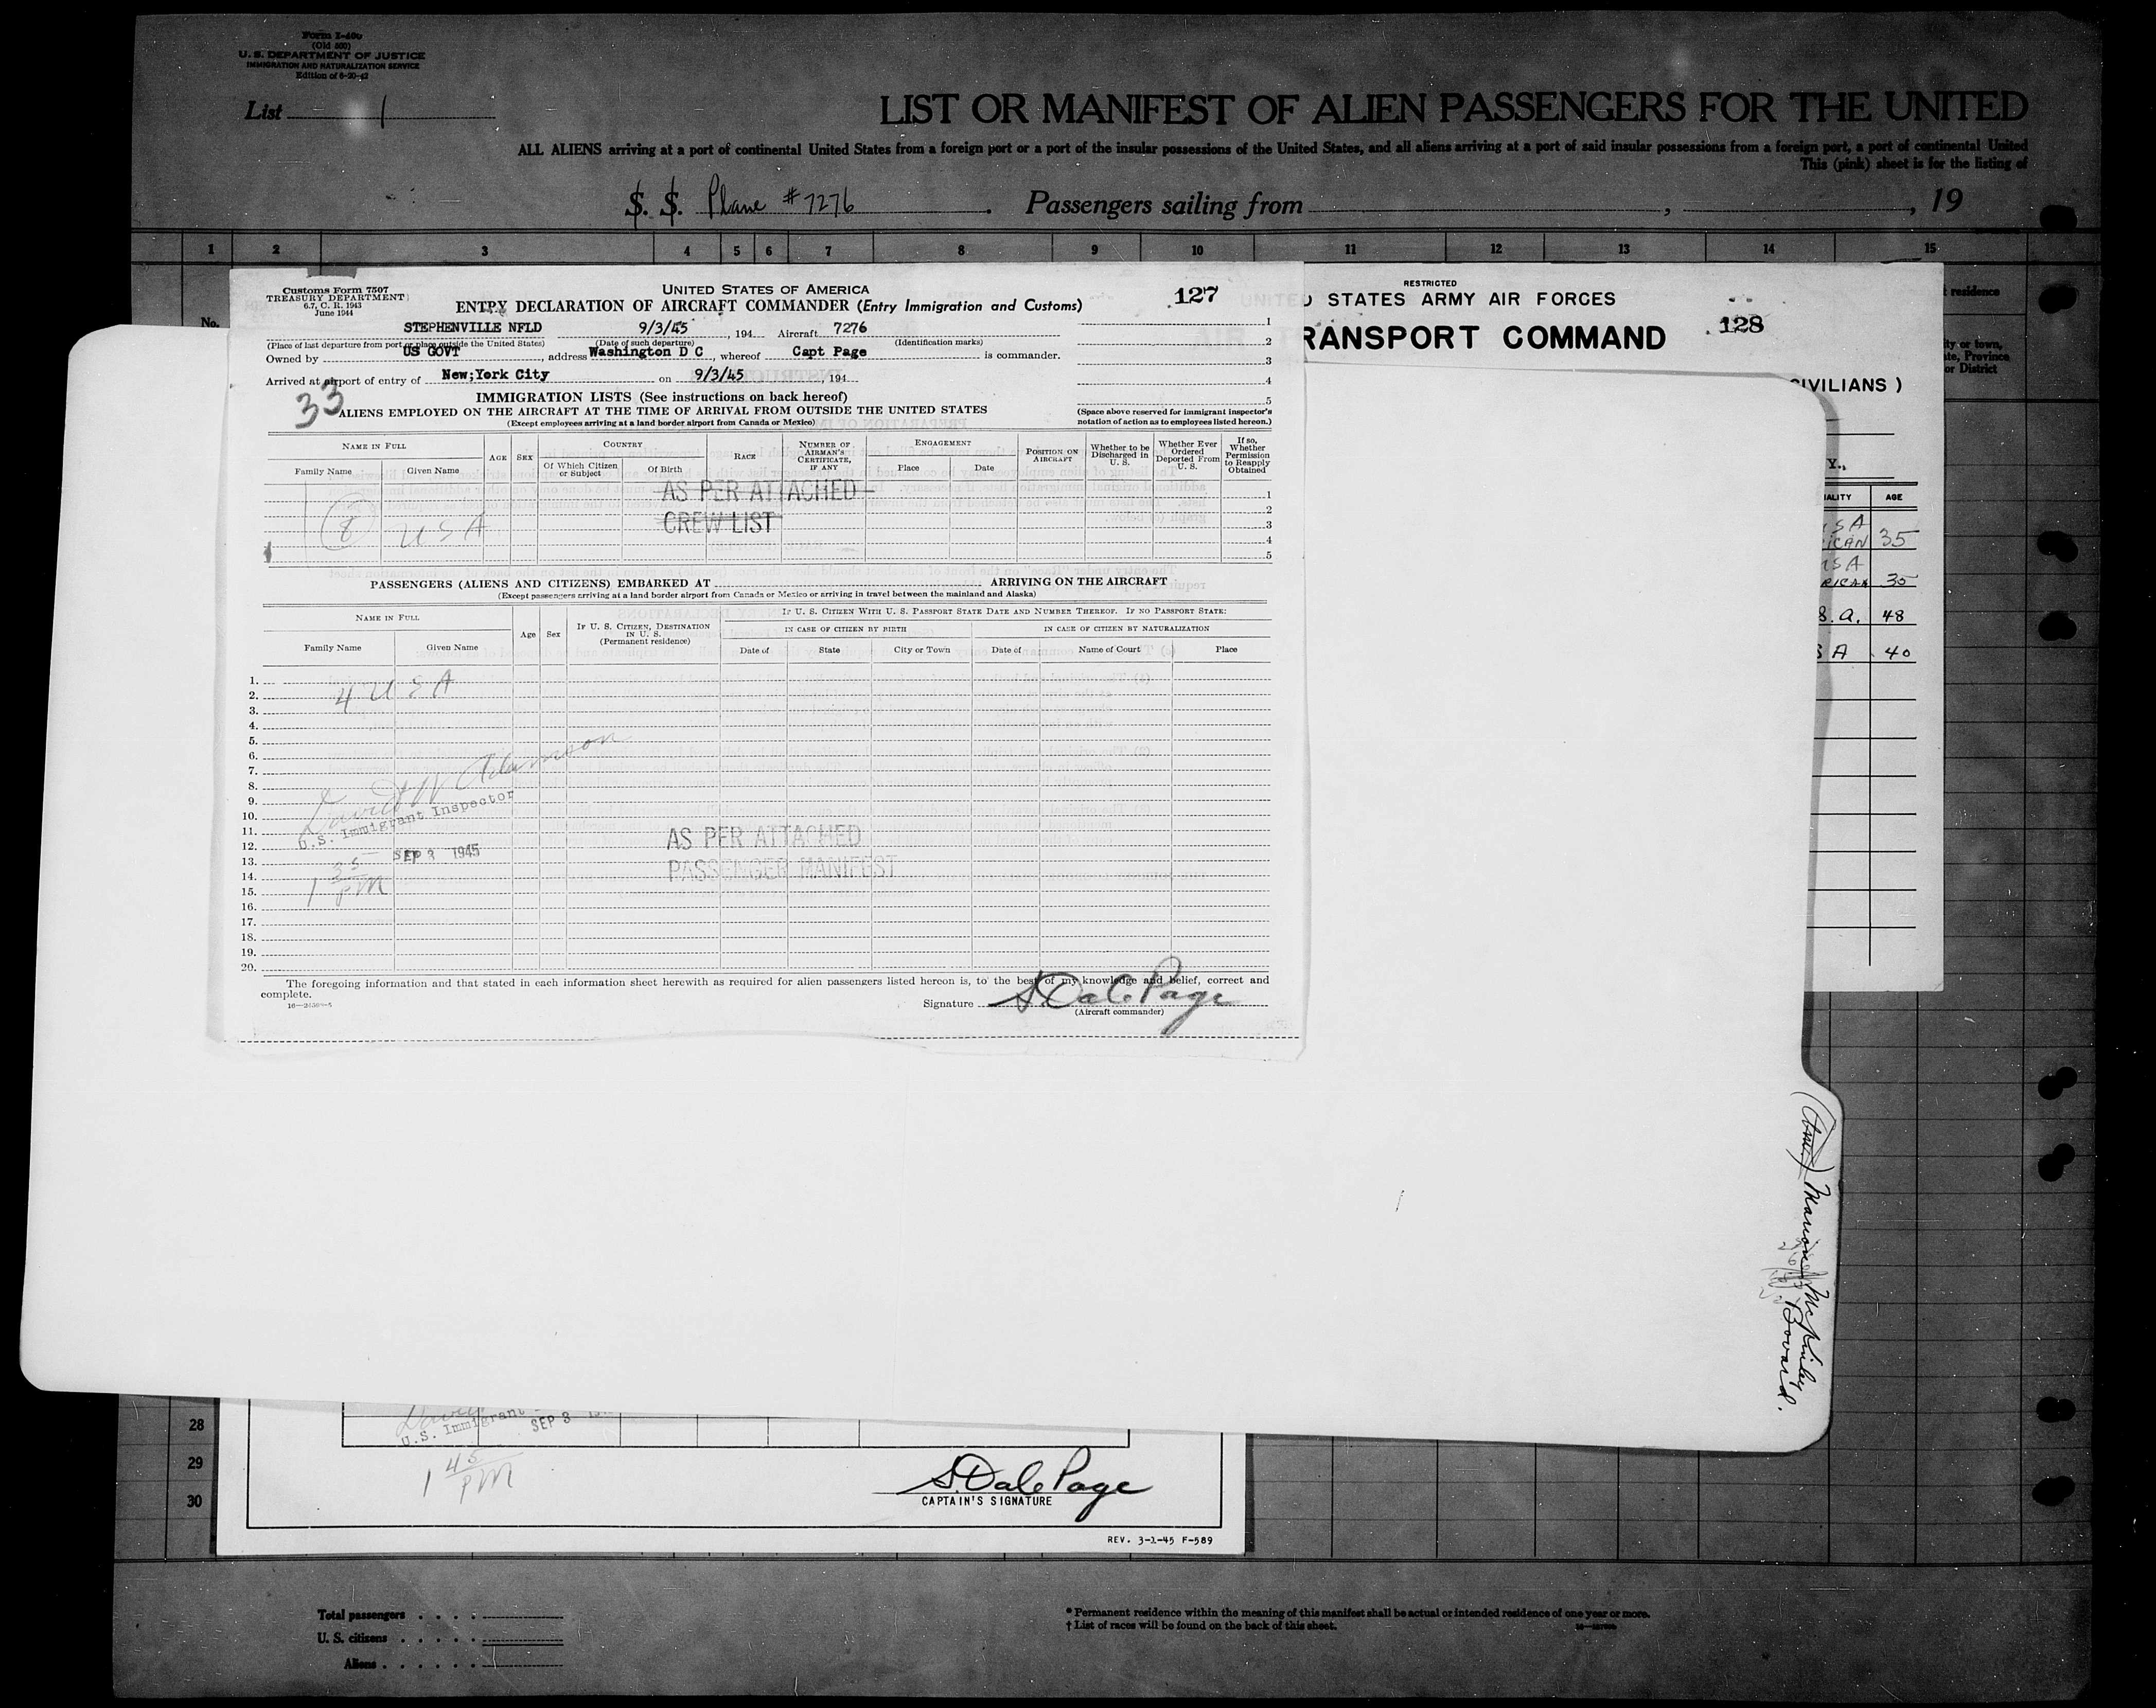 Form I-400
(Old 500)
U. S. DEPARTMENT OF JUSTICE
IMMIGRATION AND NATURALIZATION SERVICE
Edition of 6-20-42
List 1
LIST OR MANIFEST OF ALIEN PASSENGERS FOR THE UNITED
ALL ALIENS arriving at a port of continental United States from a foreign port or a port of the insular possessions of the United States, and all aliens arriving at a port of said insular possessions from a foreign port, a port of continental United
This (pink) sheet is for the listing of
S. S. Plane # 7276 . Passengers sailing from , , 19
1 2 3 4 5 6 7 8 9 10 11 12 13 14 15
residence
No.
ity or town,
te, Province
or District
Customs Form 7507
TREASURY DEPARTMENT
6.7, C. R. 1943
June 1944
UNITED STATES OF AMERICA
ENTRY DECLARATION OF AIRCRAFT COMMANDER (Entry Immigration and Customs)
127
STEPHENVILLE NFLD 9/3/45 , 194 Aircraft 7276
(Place of last departure from port or place outside the United States) (Date of such departure) (Identification marks)
Owned by US GOVT , address Washington D C , whereof Capt Page is commander.
Arrived at airport of entry of New;York City on 9/3/45 , 194
1
2
3
4
5
33
IMMIGRATION LISTS (See instructions on back hereof)
ALIENS EMPLOYED ON THE AIRCRAFT AT THE TIME OF ARRIVAL FROM OUTSIDE THE UNITED STATES
(Except employees arriving at a land border airport from Canada or Mexico)
(Space above reserved for immigrant inspector's
notation of action as to employees listed hereon.)
NAME IN FULL
Family Name Given Name
AGE SEX
COUNTRY
Of Which Citizen or Subject Of Birth
RACE
NUMBER OF AIRMAN'S CERTIFICATE, IF ANY
ENGAGEMENT
Place Date
POSITION ON AIRCRAFT
Whether to be Discharged in U. S.
Whether Ever Ordered Deported From U. S.
If so, Whether Permission to Reapply Obtained
AS PER ATTACHED
CREW LIST
8 USA
1
2
3
4
5
PASSENGERS (ALIENS AND CITIZENS) EMBARKED AT ARRIVING ON THE AIRCRAFT
(Except passengers arriving at a land border airport from Canada or Mexico or arriving in travel between the mainland and Alaska)
NAME IN FULL
Family Name Given Name
Age Sex
IF U. S. CITIZEN, DESTINATION IN U. S.
(Permanent residence)
IF U. S. CITIZEN WITH U. S. PASSPORT STATE DATE AND NUMBER THEREOF. IF NO PASSPORT STATE:
IN CASE OF CITIZEN BY BIRTH IN CASE OF CITIZEN BY NATURALIZATION
Date of State City or Town Date of Name of Court Place
1.
4 USA
2.
3.
4.
5.
6.
7.
8.
David W Adamson
9.
U.S. Immigrant Inspector
10.
11.
AS PER ATTACHED
12.
SEP 3 1945
13.
PASSENGER MANIFEST
14.
1 35 PM
15.
16.
17.
18.
19.
20.
The foregoing information and that stated in each information sheet herewith as required for alien passengers listed hereon is, to the best of my knowledge and belief, correct and
complete.
Signature S. Dale Page
(Aircraft commander)
RESTRICTED
STATES ARMY AIR FORCES
128
RANSPORT COMMAND
CIVILIANS )
Y.,
ALITY AGE
SA
ICAN 35
SA
RICAN 35
S. A. 48
S A 40
Marion McKinley
Bovard.
28
29
30
U.S. Immigrant
SEP 3
1 45 PM
S. Dale Page
CAPTAIN'S SIGNATURE
REV. 3-1-45 F-589
Total passengers
U. S. citizens
Aliens
* Permanent residence within the meaning of this manifest shall be actual or intended residence of one year or more.
† List of races will be found on the back of this sheet.